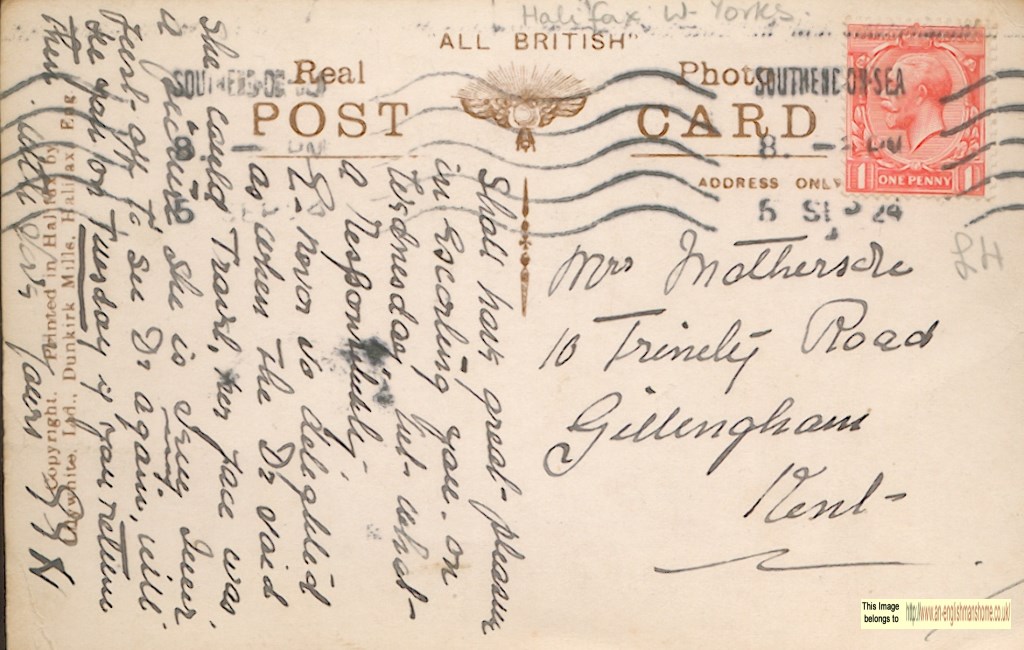 Halifax W Yorks.
"ALL BRITISH"
Real Photo
POST CARD
ADDRESS ONLY
SOUTHEND-ON-SEA
SOUTHEND-ON-SEA
8. - PM
5 SEP 24
ONE PENNY
1 1
£4
Mrs Mothersole
10 Trinity Road
Gillingham
Kent
Shall have great pleasure
in Escorting you. on
Wednesday but what
a Responsibility
E. Nevor is delighted
as when the Dr said
she could Travel, her face was
a picture she is very Inver
Turl-off to see Dr again, will
be
on Tuesday if you return
then.
yours
X
Copyright. Printed in Halifax by
Lilywhite, Ltd., Dunkirk Mills, Halifax Eng
This Image
belongs to
http://www.an-englishmanshome.co.uk/